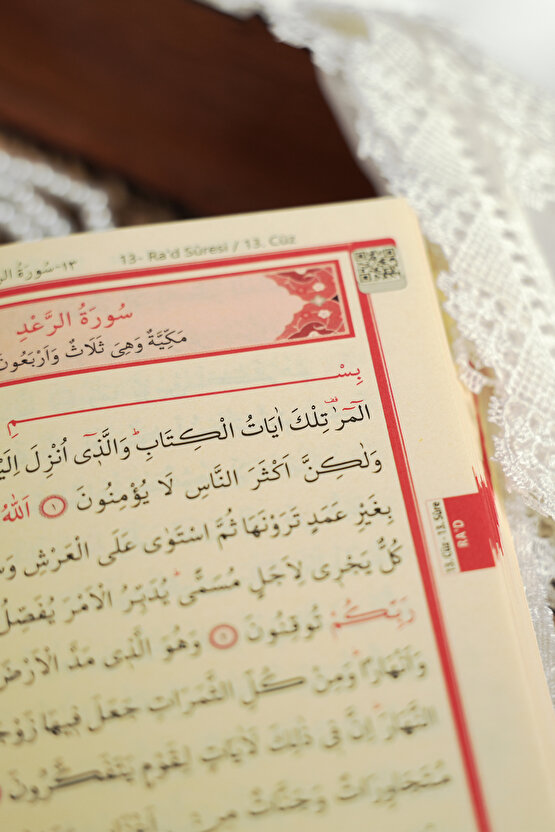 13- Ra'd Sûresi / 13. Cüz
١٣-سُورَةُ
سُورَةُ الرَّعْدِ
مَكِّيَّةٌ وَهِيَ ثَلَاثٌ وَاَرْبَعُونَ
بِسْــــــــــــمِ
الٓمٓرٰ۠ تِلْكَ اٰيَاتُ الْكِتَابِۜ وَالَّذ۪ٓي اُنْزِلَ
وَلٰكِنَّ اَكْثَرَ النَّاسِ لَا يُؤْمِنُونَ ﴿١﴾ اَللّٰهُ
بِغَيْرِ عَمَدٍ تَرَوْنَهَا ثُمَّ اسْتَوٰى عَلَى الْعَرْشِ
كُلٌّ يَجْر۪ي لِاَجَلٍ مُسَمًّىۜ يُدَبِّرُ الْاَمْرَ يُفَصِّلُ
رَبِّكُمْ تُوقِنُونَ ﴿٢﴾ وَهُوَ الَّذ۪ي مَدَّ الْاَرْضَ
وَاَنْهَارًاۜ وَمِنْ كُلِّ الثَّمَرَاتِ جَعَلَ ف۪يهَا
النَّهَارَۜ اِنَّ ف۪ي ذٰلِكَ لَاٰيَاتٍ لِقَوْمٍ يَتَفَكَّرُونَ
مُتَجَاوِرَاتٌ وَجَنَّاتٌ مِنْ
13. Cüz - 13. Sûre
RA'D